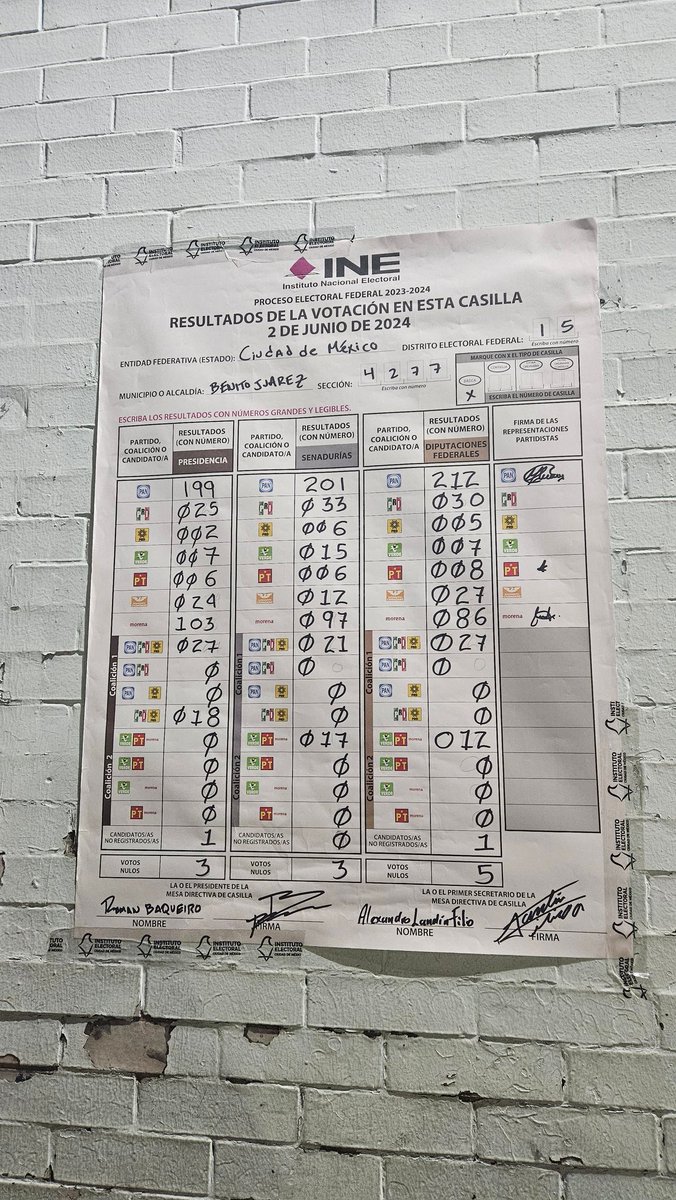 INE
Instituto Nacional Electoral
PROCESO ELECTORAL FEDERAL 2023-2024
RESULTADOS DE LA VOTACIÓN EN ESTA CASILLA
2 DE JUNIO DE 2024
ENTIDAD FEDERATIVA (ESTADO): Ciudad de México DISTRITO ELECTORAL FEDERAL: 15
Escriba con número
MUNICIPIO O ALCALDÍA: BENITO JUAREZ SECCIÓN: 4277
Escriba con número
MARQUE CON X EL TIPO DE CASILLA
BÁSICA X
ESCRIBA EL NÚMERO DE CASILLA
ESCRIBA LOS RESULTADOS CON NÚMEROS GRANDES Y LEGIBLES.
PARTIDO, COALICIÓN O CANDIDATO/A RESULTADOS (CON NÚMERO) PRESIDENCIA PARTIDO, COALICIÓN O CANDIDATO/A RESULTADOS (CON NÚMERO) SENADURÍAS PARTIDO, COALICIÓN O CANDIDATO/A RESULTADOS (CON NÚMERO) DIPUTACIONES FEDERALES FIRMA DE LAS REPRESENTACIONES PARTIDISTAS
PAN 199 PAN 201 PAN 212 PAN
PRI Ø25 PRI Ø33 PRI Ø30 PRI
PRD ØØ2 PRD ØØ6 PRD ØØ5 PRD
VERDE ØØ7 VERDE Ø15 VERDE ØØ7 VERDE
PT ØØ6 PT ØØ6 PT ØØ8 PT
Ø24 Ø12 Ø27
morena 103 morena Ø97 morena Ø86 morena
Coalición 1 PAN PRI PRD Ø27 Coalición 1 PAN PRI PRD Ø21 Coalición 1 PAN PRI PRD Ø27
PAN PRI Ø PAN PRI Ø PAN PRI Ø
PAN PRD Ø PAN PRD Ø PAN PRD Ø
PRI PRD Ø18 PRI PRD Ø PRI PRD Ø
Coalición 2 VERDE PT morena Ø Coalición 2 VERDE PT morena Ø17 Coalición 2 VERDE PT morena 012
VERDE PT Ø VERDE PT Ø VERDE PT Ø
VERDE morena Ø VERDE morena Ø VERDE morena Ø
PT morena Ø PT morena Ø PT morena Ø
CANDIDATOS/AS NO REGISTRADOS/AS 1 CANDIDATOS/AS NO REGISTRADOS/AS Ø CANDIDATOS/AS NO REGISTRADOS/AS 1
VOTOS NULOS 3 VOTOS NULOS 3 VOTOS NULOS 5
LA O EL PRESIDENTE DE LA MESA DIRECTIVA DE CASILLA LA O EL PRIMER SECRETARIO DE LA MESA DIRECTIVA DE CASILLA
BAQUEIRO Alexandro
NOMBRE FIRMA NOMBRE FIRMA
INSTITUTO ELECTORAL CIUDAD DE MÉXICO